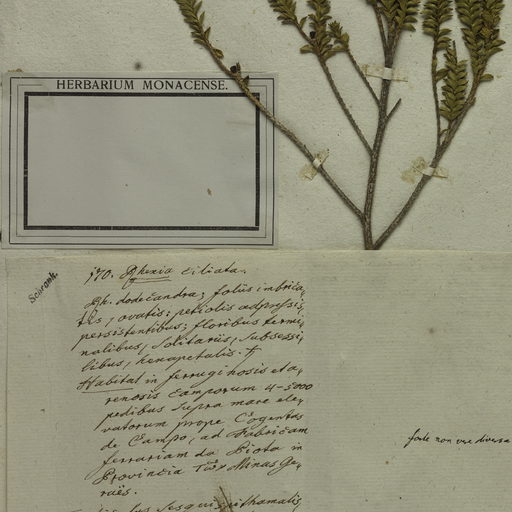 HERBARIUM MONACENSE.
Schrank.
170. Rhexia ciliata.
Rh. dodecandra; foliis imbrica,
tis, ovatis; petiolis adpressis,
persistentibus; floribus termi,
nalibus, solitariis, subsessi,
libus, hexapetalis. ♄
Habitat in ferruginosis et a,
renosis camporum 4-5000
pedibus supra mare ele,
vatorum prope Cogonhas
de Campo, ad Fabricam
ferrariam da Prota in
Provincia Minas Ge,
raës.
sesquispithamalis,
forte non vere diversa